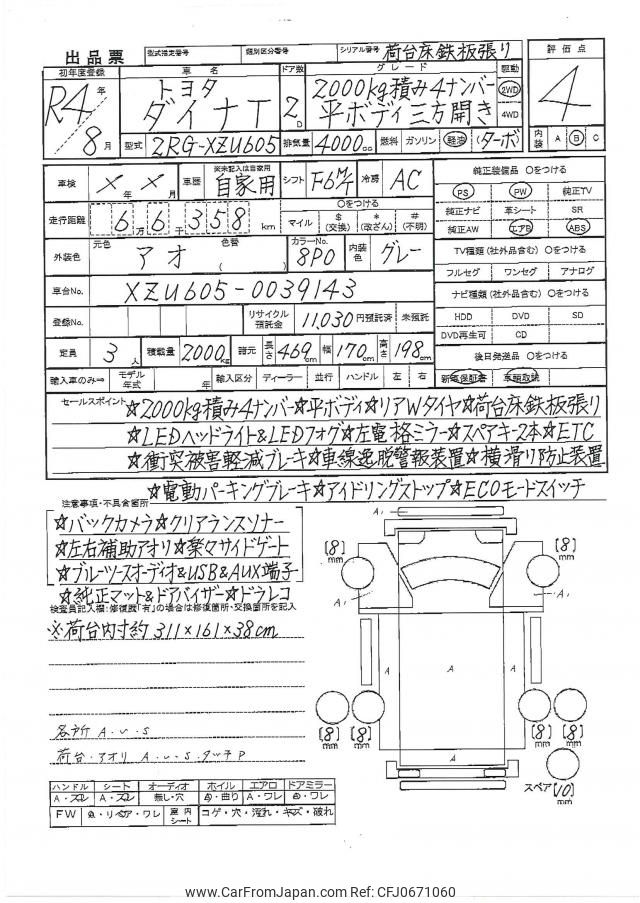 出品票 型式指定番号 類別区分番号 シリアル番号 荷台床鉄板張り 評価点
初年度登録 車名 ドア数 グレード 駆動
R4年 トヨタ 2000kg積み4ナンバー 2WD 4
ダイナT 2D 平ボディ三方開き 4WD
8月 型式 2RG-XZU605 排気量 4000cc 燃料 ガソリン 軽油 (ターボ) 内装 A B C
車検 ×年×月 車歴 未記入は自家用 自家用 シフト F6M/T 冷房 AC 純正装備品 ○をつける
PS PW 純正TV
走行距離 6万6千358km ○をつける マイル $(交換) *(改ざん) #(不明) 純正ナビ 革シート SR
純正AW エアB ABS
外装色 元色 アオ 色替( ) カラーNo. 8P0 内装色 グレー TV種類(社外品含む) ○をつける
フルセグ ワンセグ アナログ
車台No. XZU605-0039143 ナビ種類(社外品含む) ○をつける
登録No. リサイクル預託金 11,030円預託済 未預託 HDD DVD SD
DVD再生可 CD
定員 3人 積載量 2000kg 諸元 長さ 469cm 幅 170cm 高さ 198cm 後日発送品 ○をつける
輸入車のみ⇒ モデル年式 年 輸入区分 ディーラー 並行 ハンドル 左 右 新車保証書 車輌取説
セールスポイント ☆2000kg積み4ナンバー☆平ボディ☆リアWタイヤ☆荷台床鉄板張り
☆LEDヘッドライト&LEDフォグ☆左電格ミラー☆スペアキー2本☆ETC
☆衝突被害軽減ブレーキ☆車線逸脱警報装置☆横滑り防止装置
☆電動パーキングブレーキ☆アイドリングストップ☆ECOモードスイッチ
注意事項・不具合箇所
☆バックカメラ☆クリアランスソナー
☆左右補助アオリ☆楽々サイドゲート
☆ブルーツースオーディオ&USB&AUX端子
☆純正マット&ドアバイザー☆ドラレコ
検査員記入欄:修復歴「有」の場合は修復箇所・交換箇所を記入
※荷台内寸約311×161×38cm
各所 A・U・S
荷台・アオリ A・U・S・タッチP
A1
[8]mm [8]mm
A1 A1
A A A
[8]mm [8]mm [8]mm [8]mm
A
スペア[10]mm
ハンドル シート オーディオ ホイル エアロ ドアミラー
A・スレ A・スレ 無し・穴 曲り A・ワレ ワレ
FW リペア・ワレ 室内シート コゲ・穴・汚れ・キズ・破れ
www.CarFromJapan.com Ref: CFJ0671060